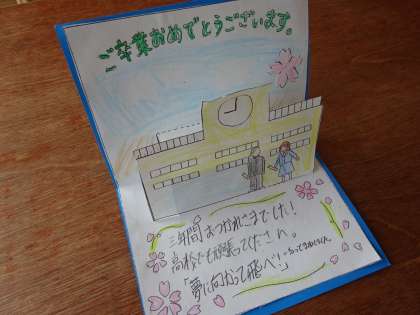 ご卒業おめでとうございます。
三年間おつかれさまでした!
高校でも頑張ってください。
「夢に向かって飛べ!」